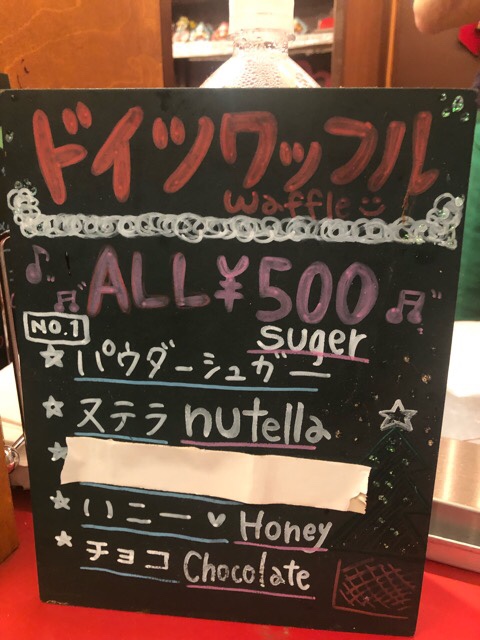 ドイツワッフル
waffle
ALL ¥500
NO.1
suger
パウダーシュガー
ヌテラ nutella
ハニー Honey
チョコ Chocolate